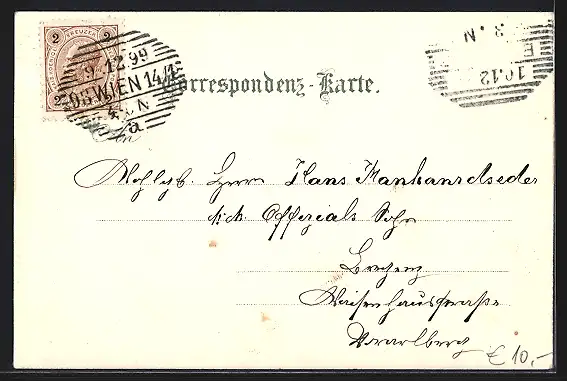 2 KREUZER 2
9.12.99
WIEN 14/1
4. N
a
Correspondenz-Karte.
3. N
10.12
E
Wohlgb. Herrn Hans Mankanstseder
k.k. Offizials Sohn
Bregenz
Waisenhausstrasse
Vorarlberg
€ 10,-